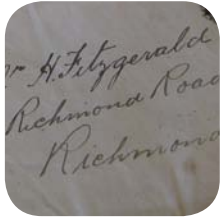 H. Fitzgerald
Richmond Road
Richmond